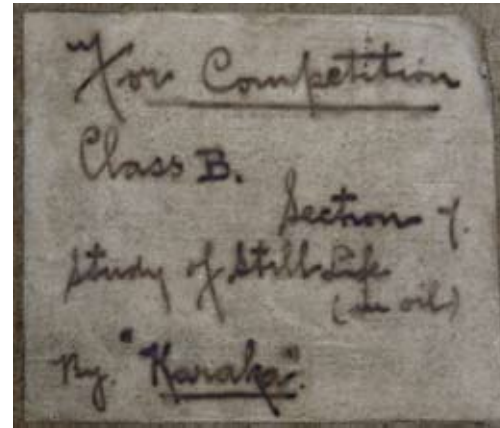 For Competition
Class B.
Section 7.
Study of Still Life
(in oil)
By. "Karaka".